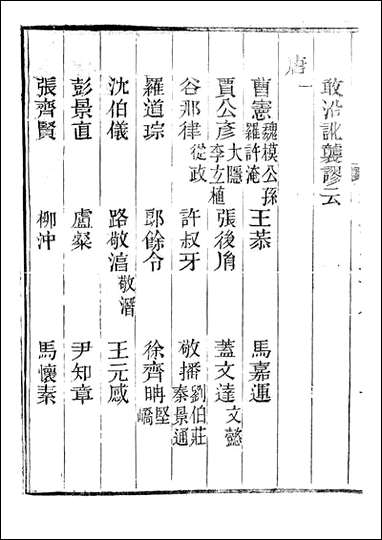 敢沿訛襲謬云
唐一
曹憲 魏模公孫羅許淹 王恭 馬嘉運
賈公彥 大隱李玄植 張後胤 蓋文達 文懿
谷那律 從政 許叔牙 敬播 劉伯莊秦景通
羅道琮 郎餘令 徐齊聃 堅嶠
沈伯儀 路敬淳 敬潛 王元感
彭景直 盧粲 尹知章
張齊賢 柳沖 馬懷素